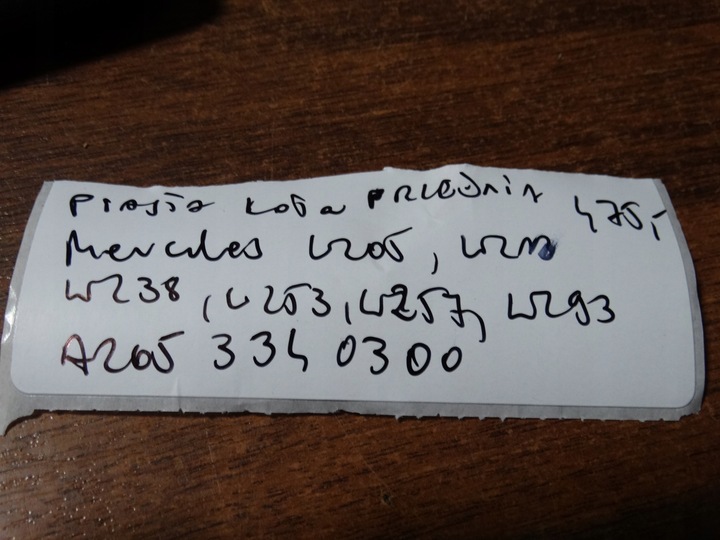 PIASTA KOŁA PRZEDNIA 475,-
Mercedes W205, W213
W238, W253, W257, W293
A205 334 0300